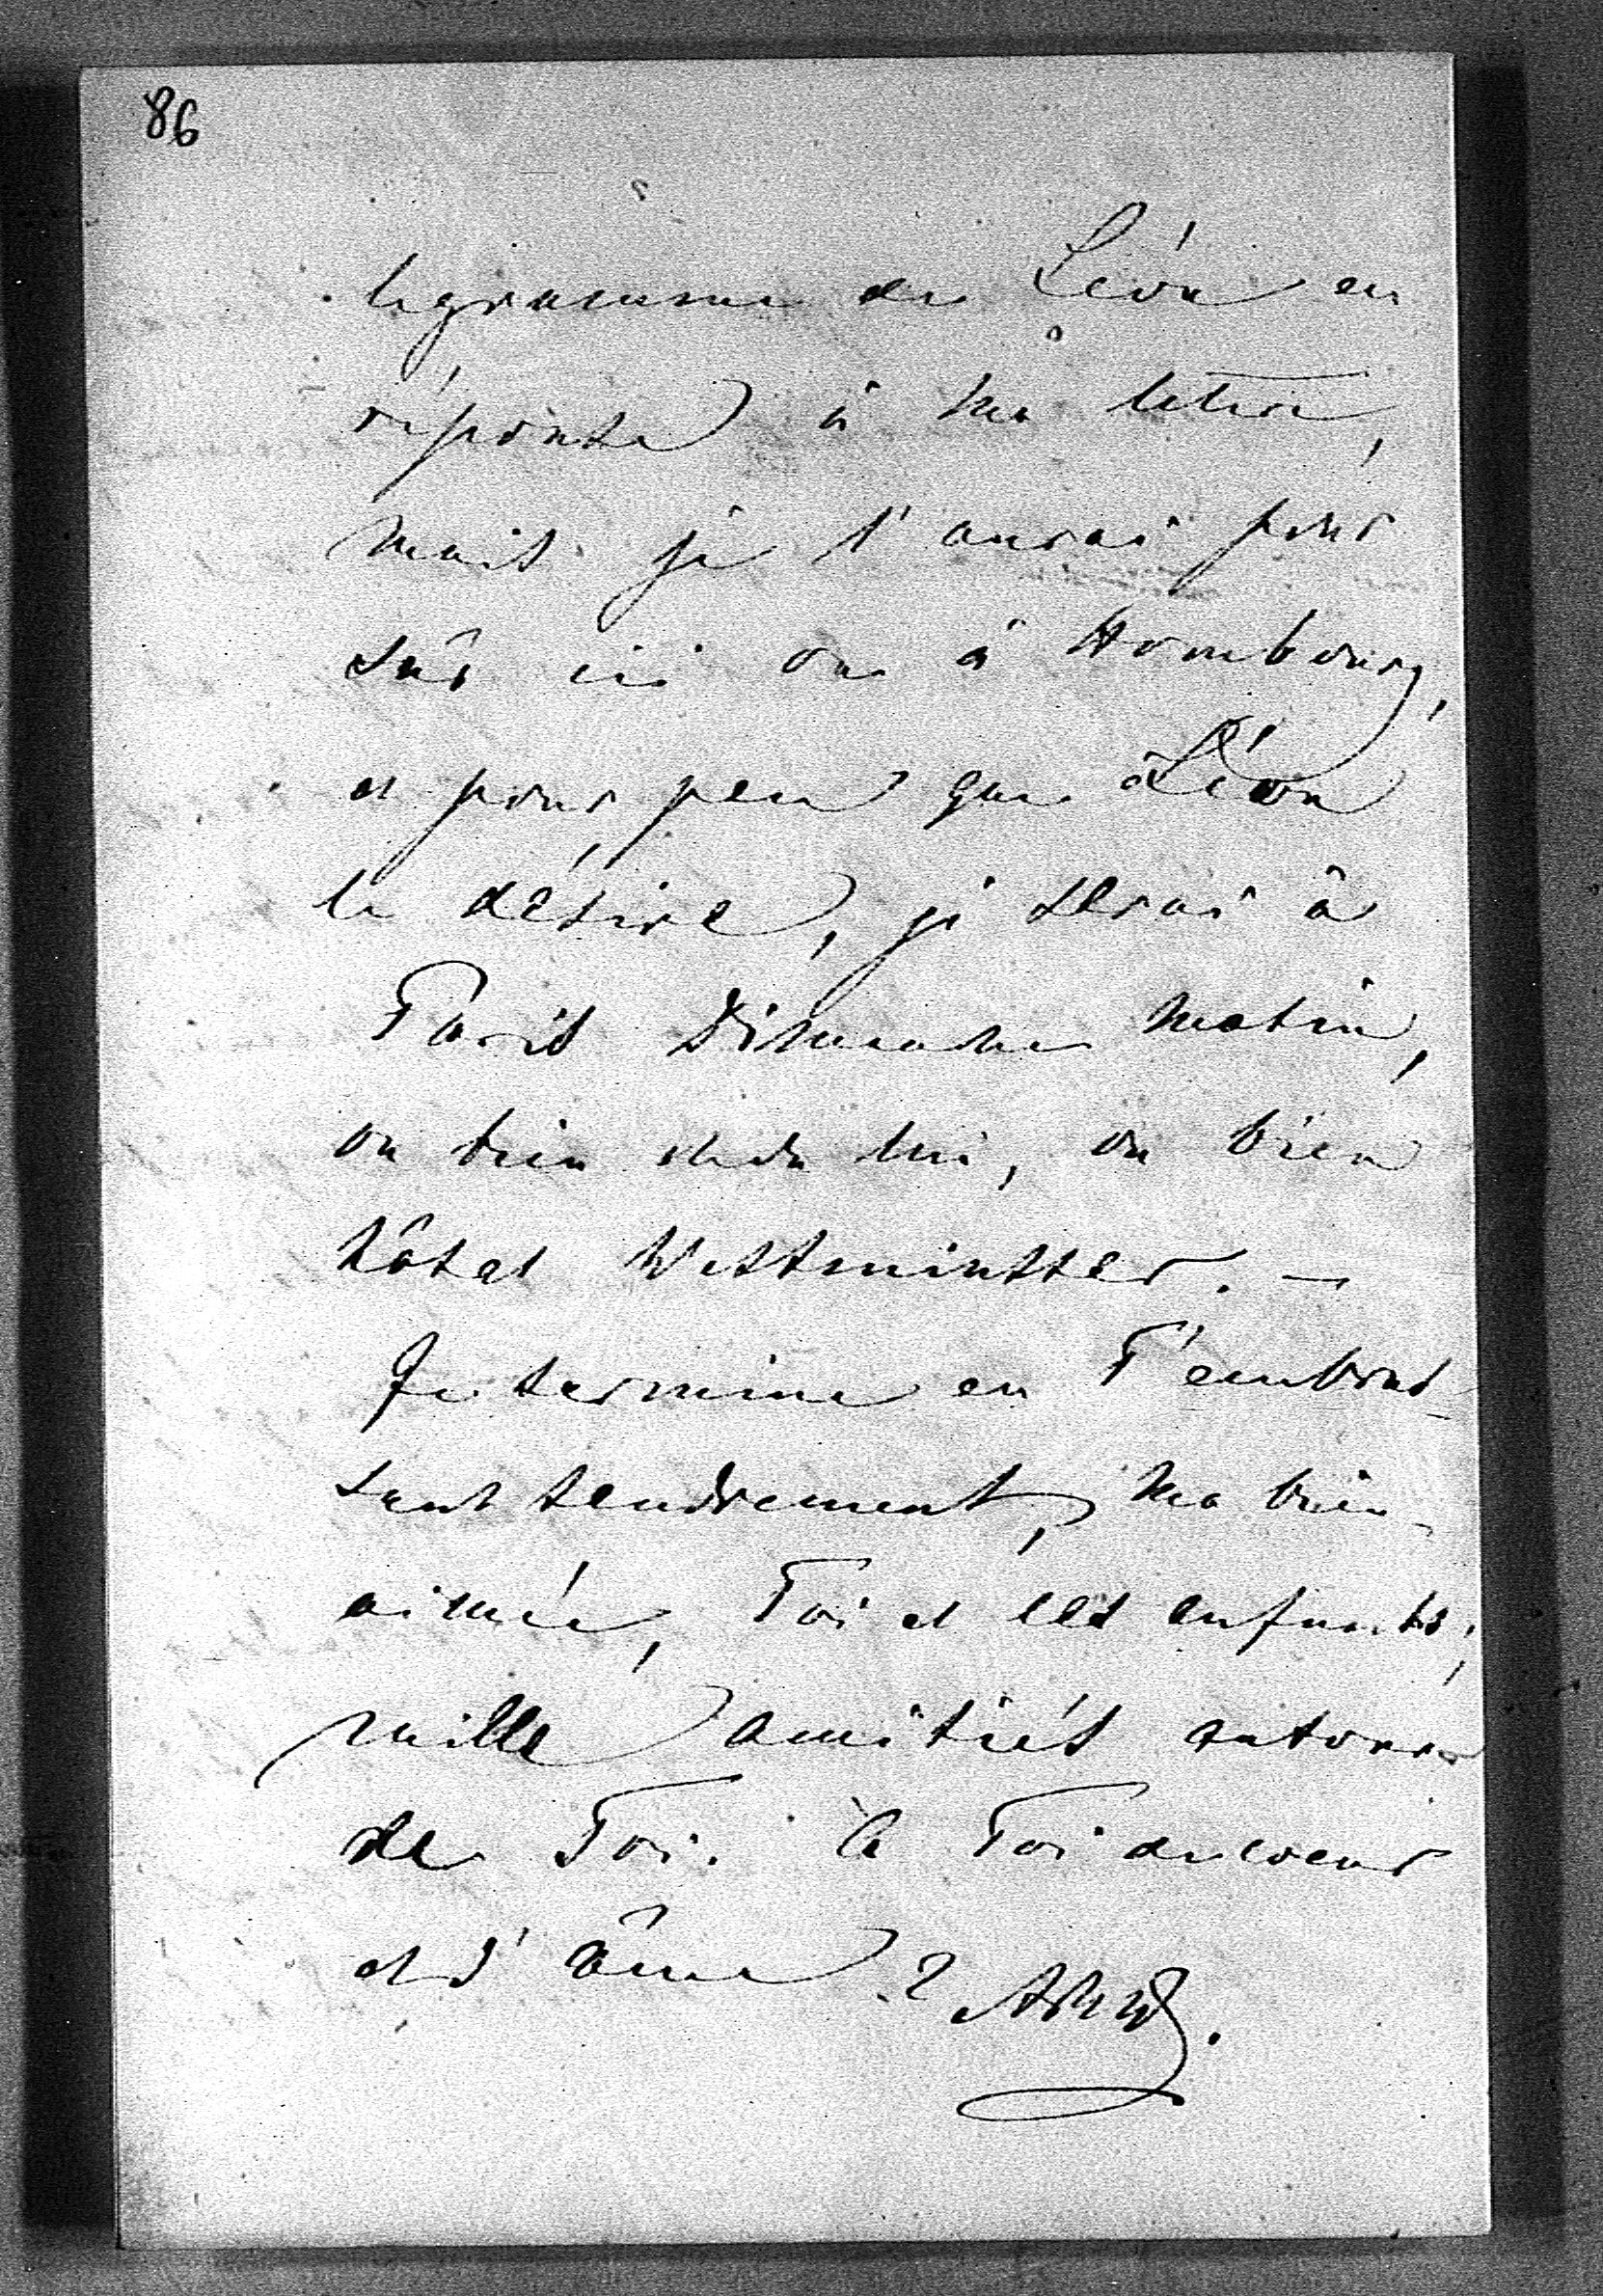 86
légramme de Léon en
réponse à ma lettre,
mais je l'aurai pour
sûr ici ou à Hombourg,
et pour peu que Léon
le désire, je serai à
Paris Dimanche matin,
ou bien chez lui, ou bien
hôtel Westminster. —
Je termine en T'embras-
sant tendrement, ma bien-
aimée, Toi et les enfants;
mille amitiés autour
de Toi. À Toi de cœur
et d'âme